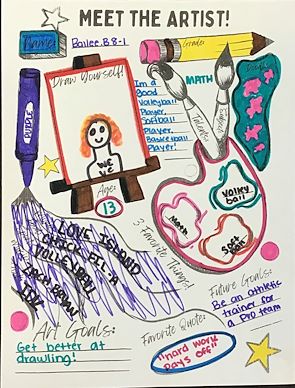 MEET THE ARTIST!
Name:
Bailee.B 8-1
Grade:
Draw Yourself!
Im a
good
Volleyball
Player,
Softball
Player,
Basketball
Player!
MATH
Talents:
Subject:
PURPLE
Age:
13
3 Favorite Things!
Math
Volley
ball
Soft
LOVE ISLAND
CHICK-FIL-A
VOLLEYBALL
ZACH BRYAN
Future Goals:
Be an athletic
trainer for
a pro team
Art Goals:
Get better at
drawling!
Favorite Quote:
"hard work
Pays off"